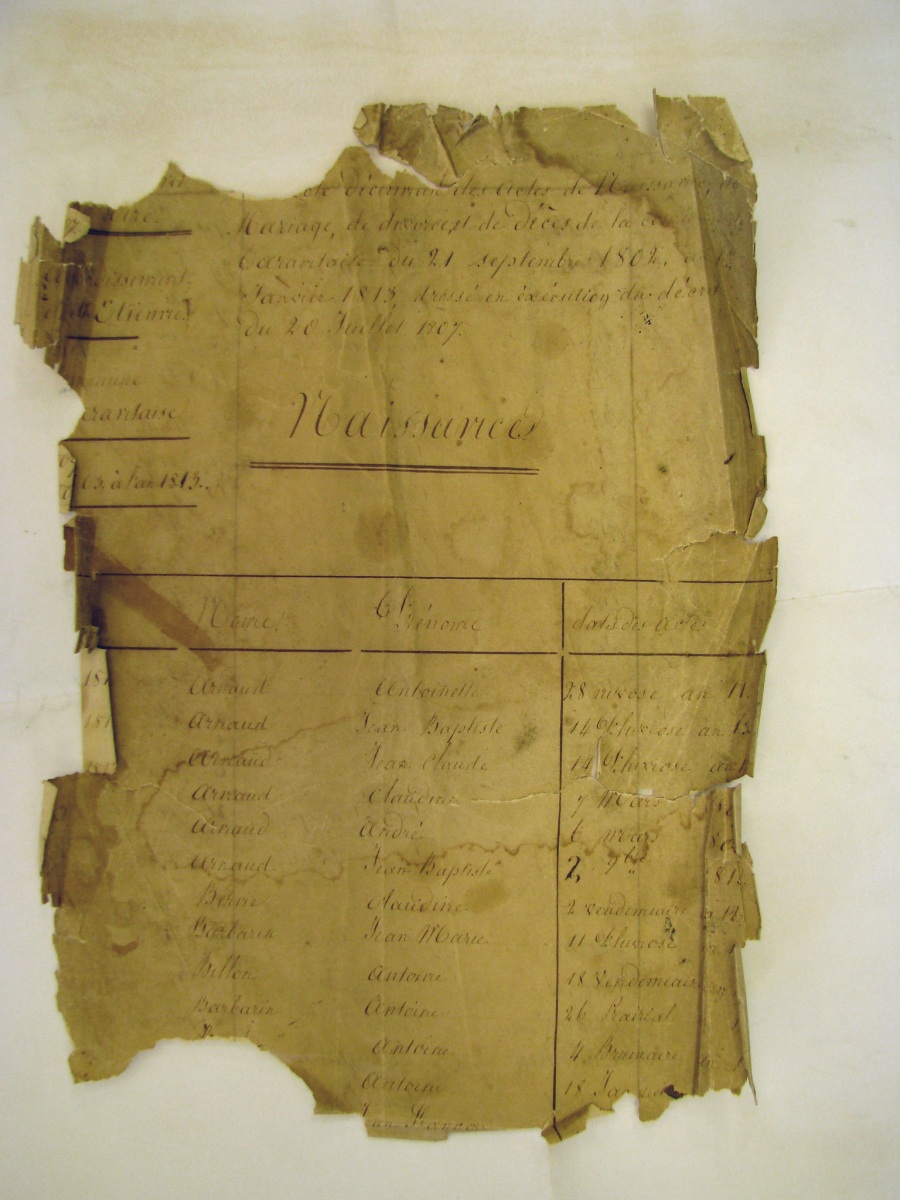 aire
ondissement
St Etienne
mune
arantaise
3. à l'an 1813.
décennale des Actes de Naissance, de
Mariage, de divorce et de Décès de la commune
Tarantaise du 21 septembre 1802, au 1er
Janvier 1813, dressé en éxécution du décret
du 20 Juillet 1807.
Naissances
Noms Prénoms dates des Actes
181 Arnaud Antoinette 28 nivose an 11.
181 Arnaud Jean Baptiste 14 Pluviose an 13
Arnaud Jean Claude 14 Pluviose an
Arnaud Claudine 7 Mars
Arnaud André 6 mars 80
Arnaud Jean Baptiste 2 9bre 181
Claudine 2 vendemiaire an 12
Barbarin Jean Marie 11 Pluviose
Billon Antoine 18 Vendemiaire an
Barbarin Antoine 26 Prairial
Antoine 4 Brumaire an 1
Antoine 18 Janvier
Jean François